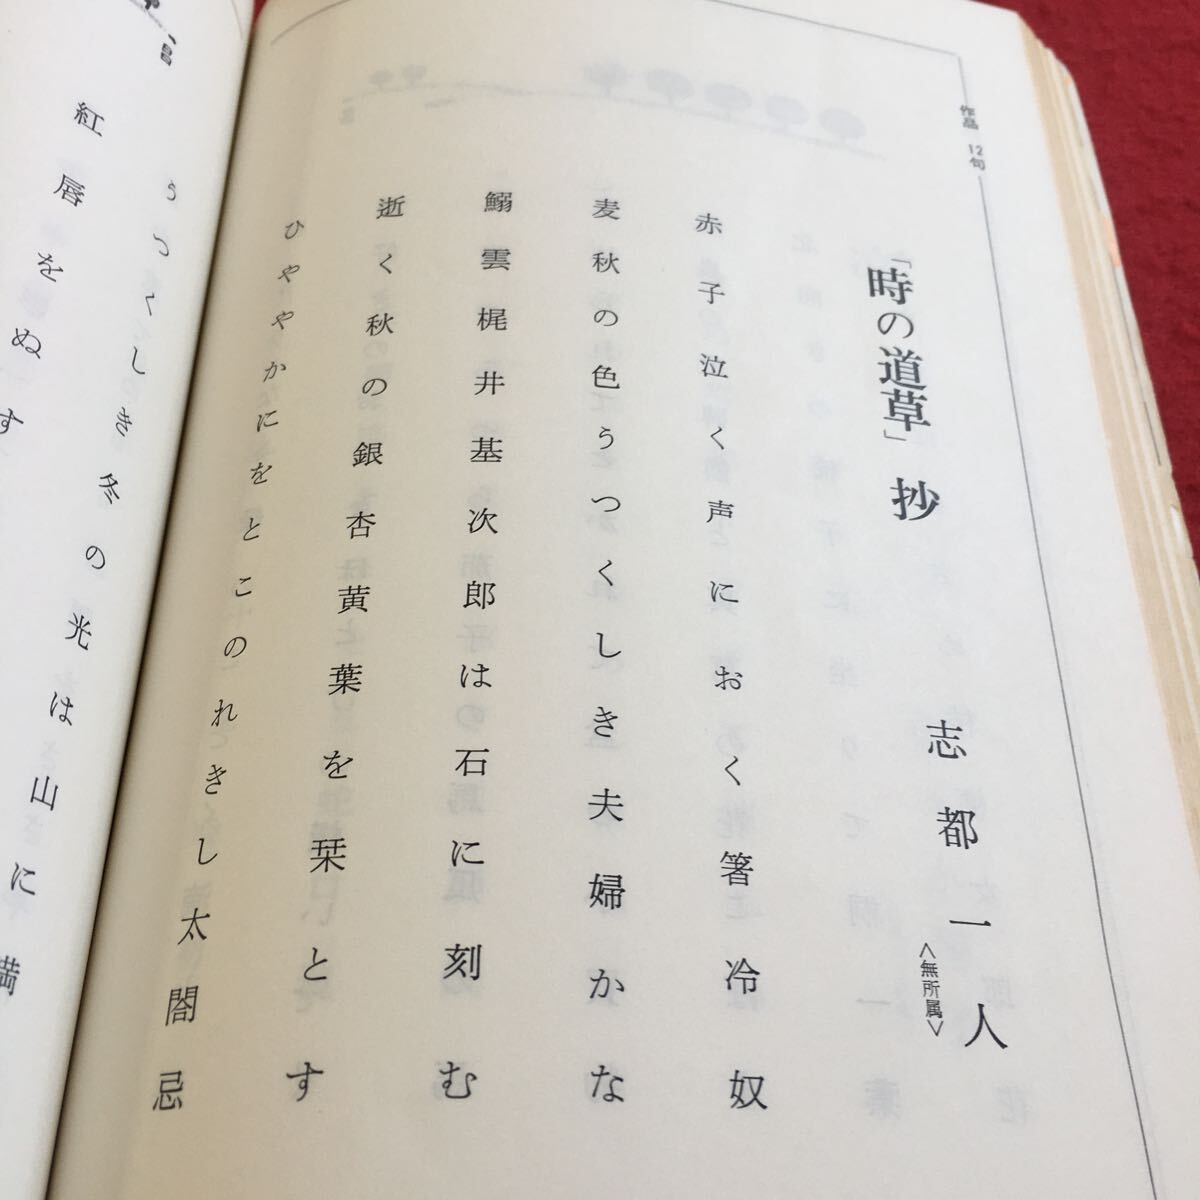 作品 12句
「時の道草」抄
志都一人
＜無所属＞
赤子泣く声におく箸冷奴
麦秋の色うつくしき夫婦かな
鰯雲梶井基次郎は石に刻む
逝く秋の銀杏黄葉を栞とす
ひややかにをとこのれきし太閤忌
うつくしき冬の光は山に満
紅唇をぬす